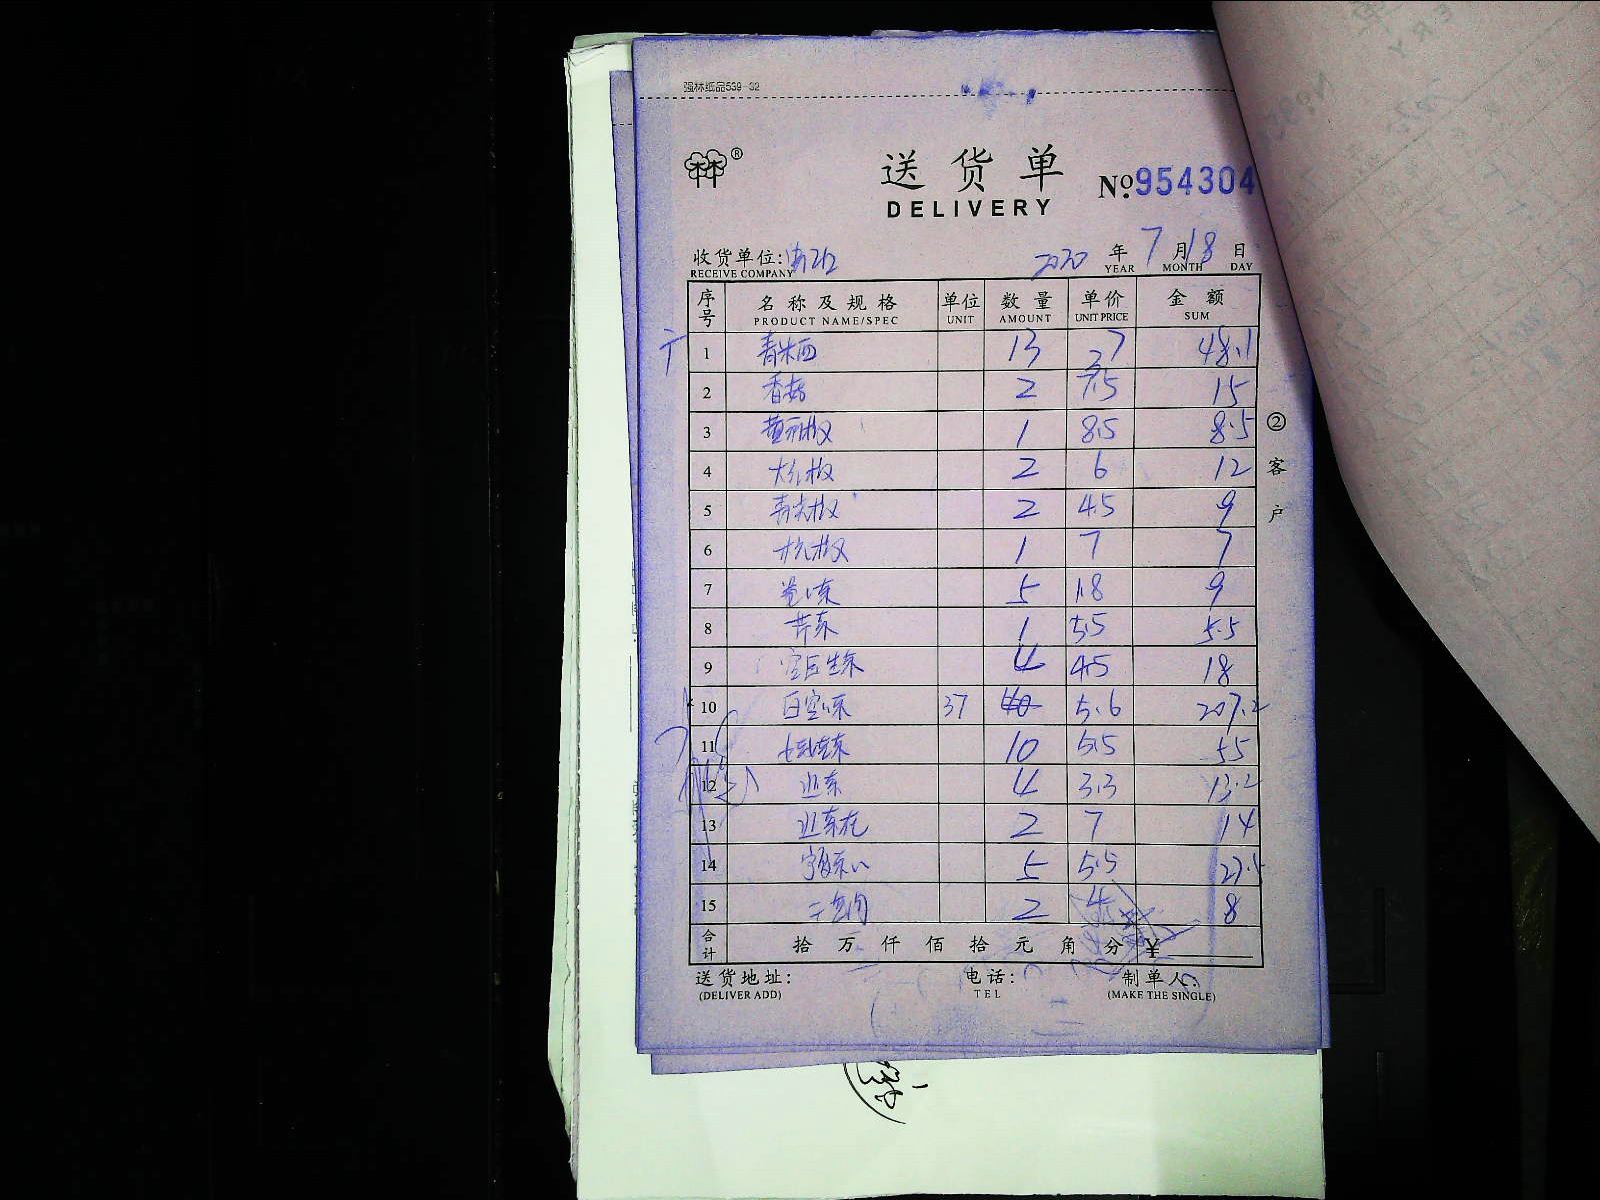 强林纸品539-32
®
送货单
DELIVERY
№954304
收货单位:
RECEIVE COMPANY
2020 年 7 月 18 日
YEAR MONTH DAY
序号 名称及规格 单位 数量 单价 金额
PRODUCT NAME/SPEC UNIT AMOUNT UNIT PRICE SUM
1 青米西 13 3.7 48.1
2 香菇 2 7.5 15
3 黄彩椒 1 8.5 8.5
4 大红椒 2 6 12
5 青尖椒 2 4.5 9
6 杭椒 1 7 7
7 5 1.8 9
8 芹菜 1 5.5 5.5
9 4 4.5 18
10 37 5.6 207.2
11 10 5.5 55
12 4 3.3 13.2
13 2 7 14
14 5 5.5 27.5
15 2 4 8
合计 拾 万 仟 佰 拾 元 角 分 ¥
② 客户
送货地址: 电话: 制单人:
(DELIVER ADD) TEL (MAKE THE SINGLE)